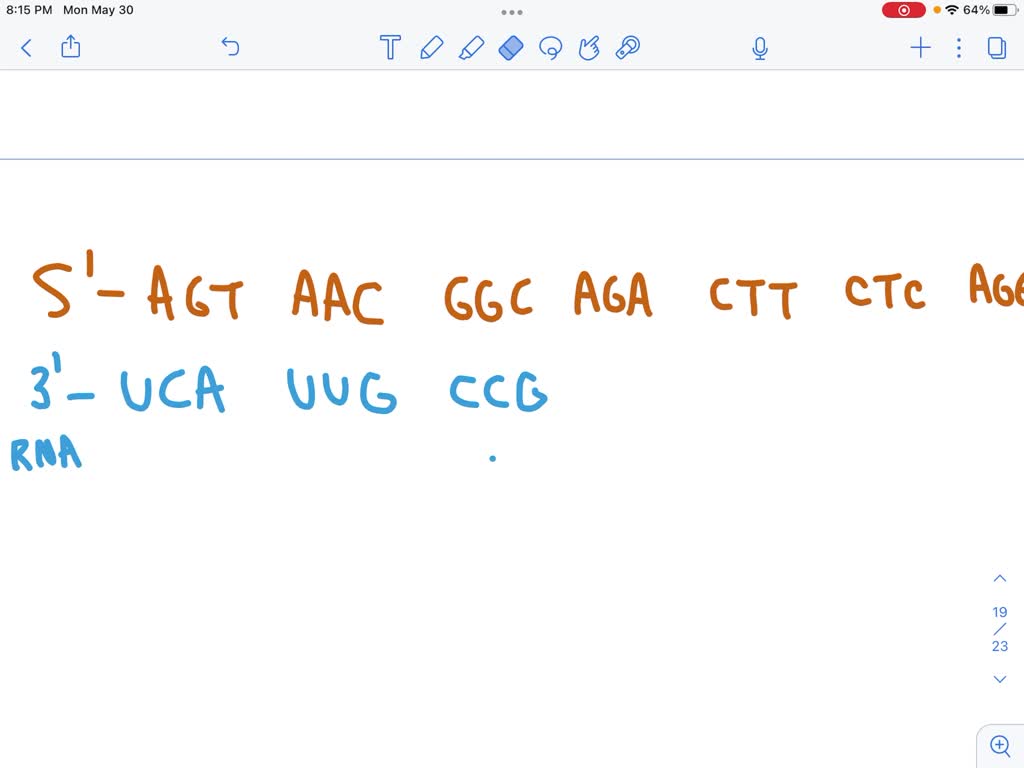 8:15 PM Mon May 30
64%
T
5'- AGT AAC GGC AGA CTT CTC AGG
3'- UCA UUG CCG
RNA
19
/
23